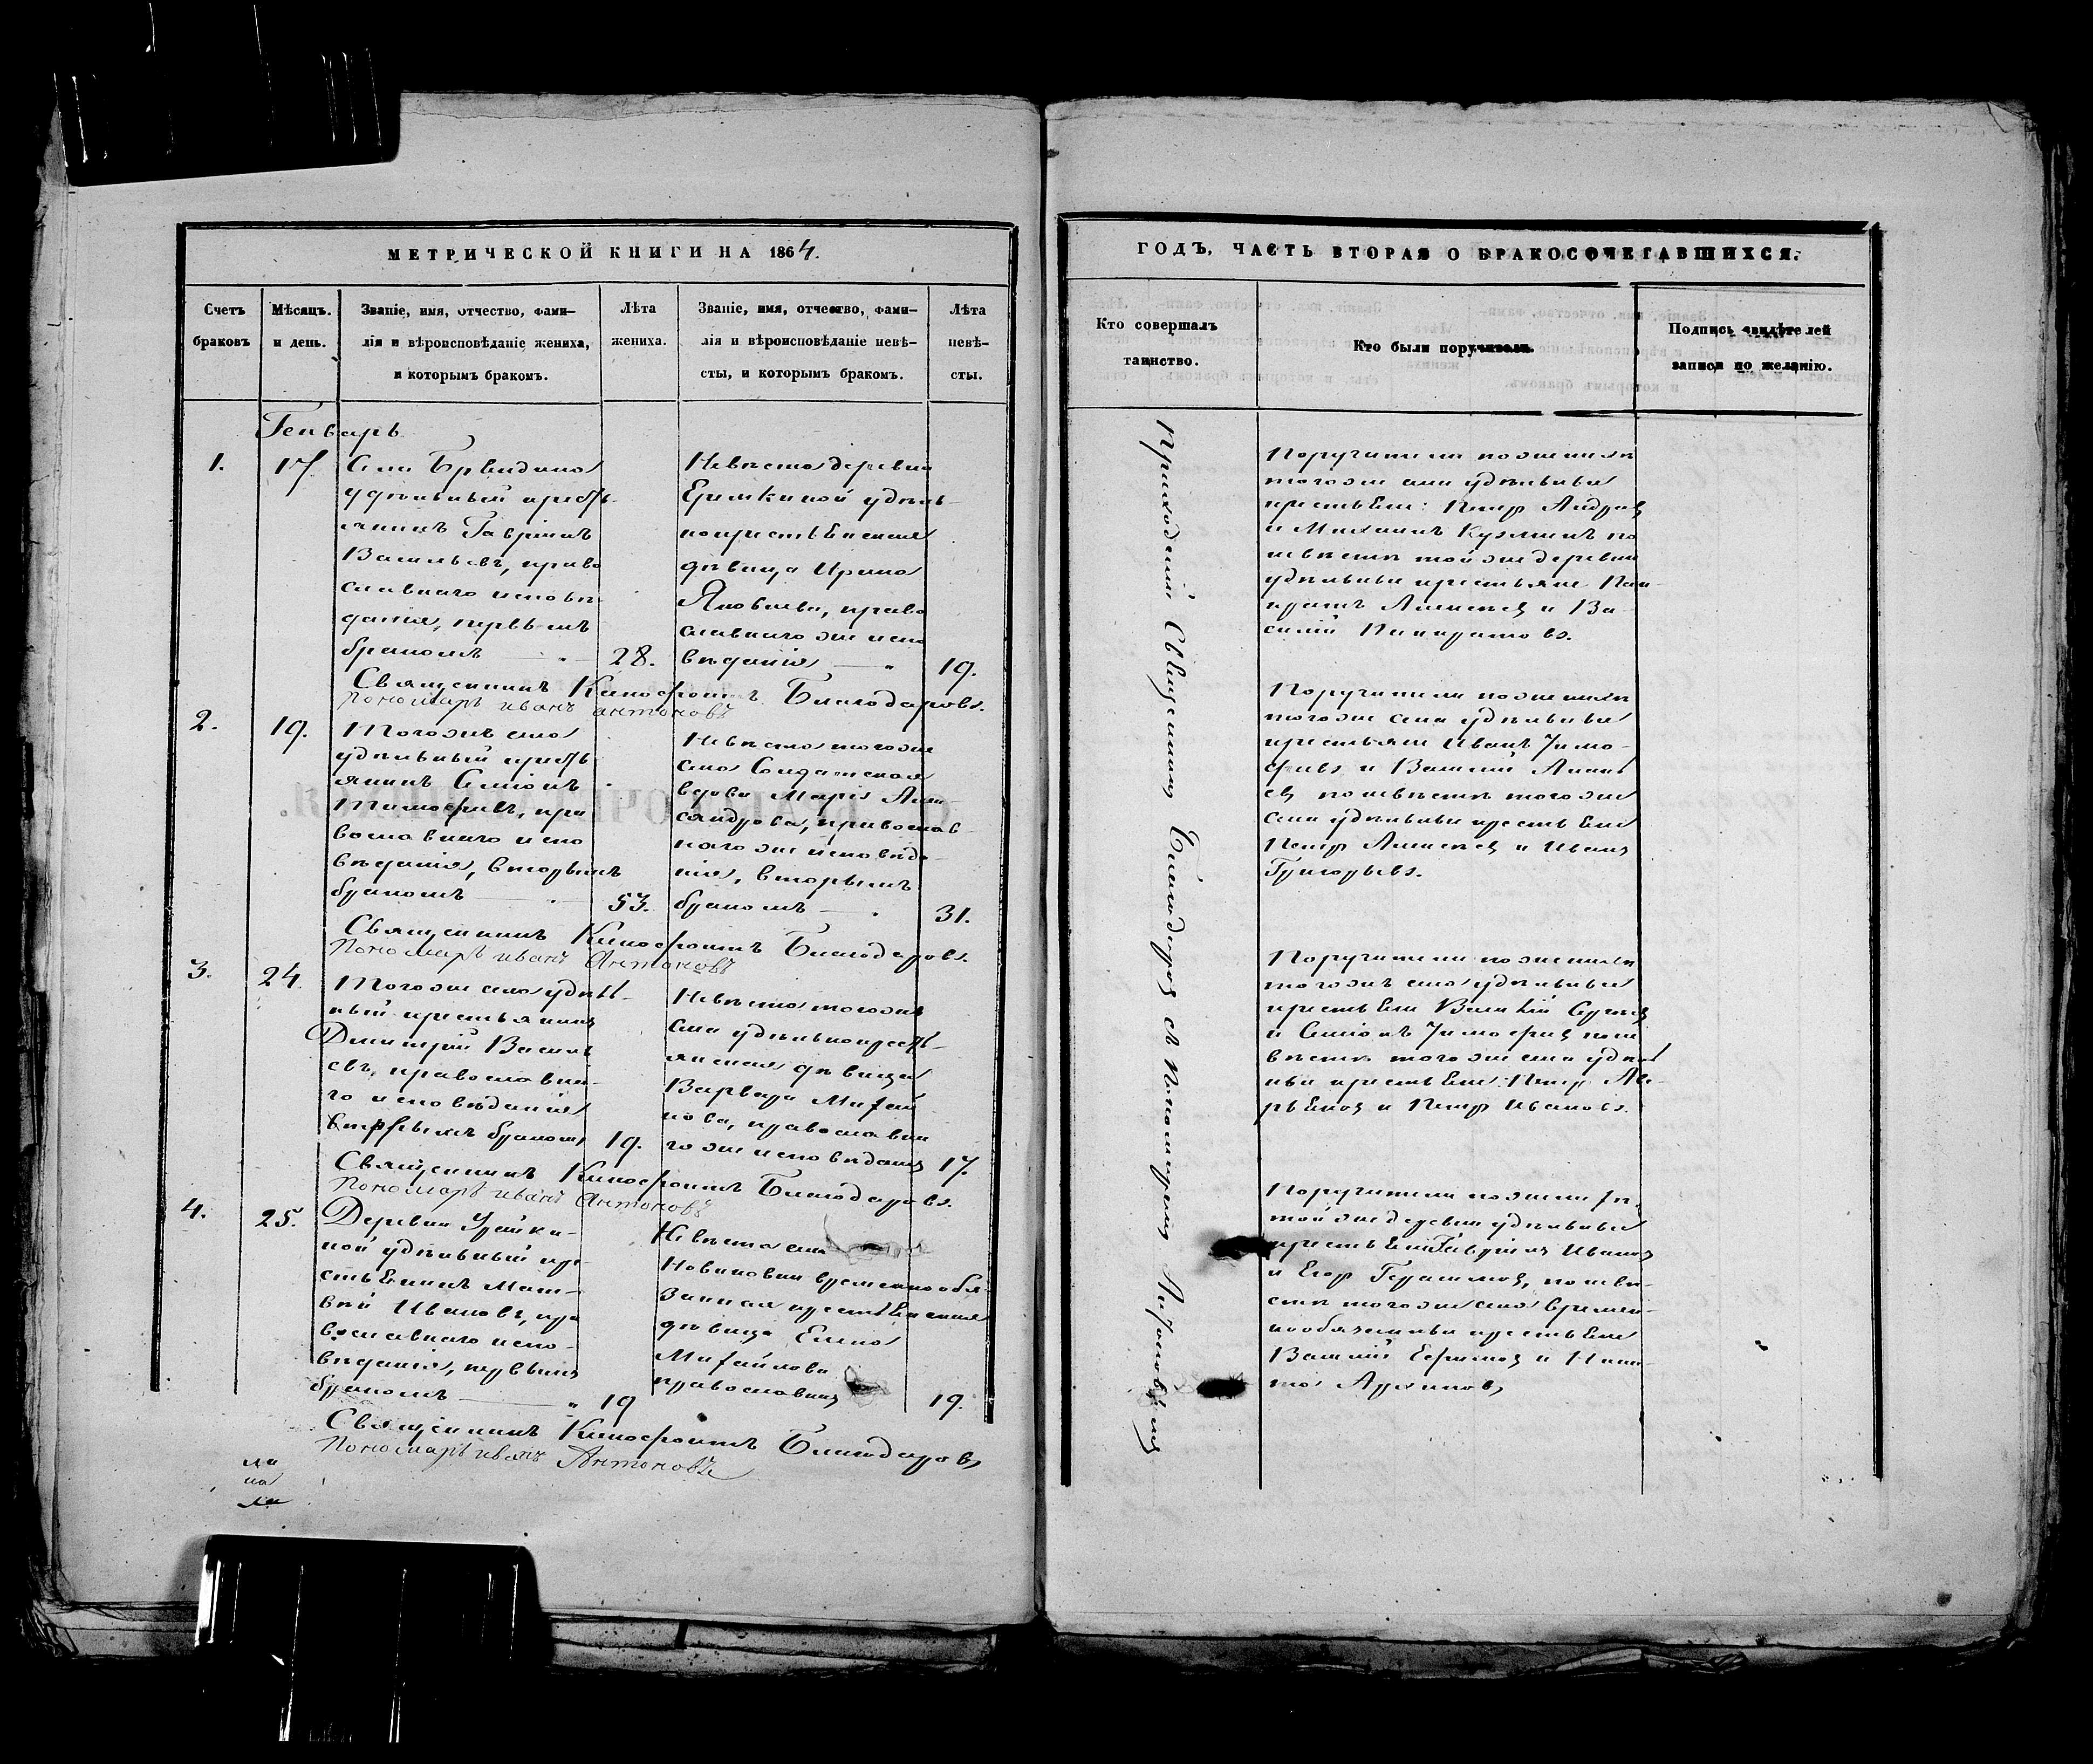 МЕТРИЧЕСКОЙ КНИГИ НА 1864.
Счетъ браковъ
Мѣсяцъ. и день.
Званіе, имя, отчество, фами-
лія и вѣроисповѣданіе жениха,
и которымъ бракомъ.
Лѣта
жениха.
Званіе, имя, отчество, фами-
лія и вѣроисповѣданіе невѣ-
сты, и которымъ бракомъ.
Лѣта
невѣ-
сты.
Генварь
1.
17.
Села
удѣльный кресть-
янинъ Гавріилъ
Васильевъ, право
славнаго исповѣ-
данія, первымъ
бракомъ
28.
Невѣста деревни
удѣль-
нокрестьянская
дѣвица Ирина
Яковлева, право
славнаго же испо
вѣданія
19.
Священникъ Ксенофонтъ Благодаровъ.
Пономарь иванъ антоновъ
2.
19.
Тогоже села
удѣльный кресть
янинъ Симіонъ
Тимофеевъ, пра
вославнаго испо
вѣданія, вторымъ
бракомъ
53.
Невѣста тогоже
села Солдатская
вдова Марія Алек-
сандрова, православ-
наго же исповѣда-
нія, вторымъ
бракомъ
31.
Священникъ Ксенофонтъ Благодаровъ.
Пономарь иванъ Антоновъ
3.
24.
Тогоже села удѣль-
ный крестьянинъ
Димитрій Василь
евъ, православна-
го исповѣданія
первымъ бракомъ
19.
Невѣста тогоже
села удѣльнокресть-
янская дѣвица
Варвара Михай
лова, православна
го же исповѣданія
17.
Священникъ Ксенофонтъ Благодаровъ.
Пономарь иванъ Антоновъ
4.
25.
Деревни
ной удѣльный кре-
стьянинъ Мат-
вѣй Ивановъ, пра
вославнаго испо-
вѣданія, первымъ
бракомъ
19
Невѣста села
временнообя-
занная крестьянская
дѣвица Елена
Михайлова
православнаго
19.
Священникъ Ксенофонтъ Благодаровъ
Пономарь иванъ Антоновъ
ГОДЪ, ЧАСТЬ ВТОРАЯ О БРАКОСОЧЕТАВШИХСЯ.
Кто совершалъ
таинство.
Кто были поручители.
Подпись свидѣтелей
записи по желанію.
Приходскій Священникъ Благодаровъ съ Пономаремъ Антоновымъ
Поручители по женихѣ
тогоже села удѣльные
крестьяне: Петръ Андреевъ
и Михаилъ Кузминъ по
невѣстѣ той же деревни
удѣльные крестьяне Пан-
кратъ Алексѣевъ и Ва-
силій Панкратовъ.
Поручители по женихѣ
тогоже села удѣльные
крестьяне Иванъ Тимо-
феевъ и Василій
по невѣстѣ тогоже
села удѣльные крестьяне
Петръ Алексѣевъ и Иванъ
Григорьевъ.
Поручители по женихѣ
тогоже села удѣльные
крестьяне Василій
и Симіонъ Тимофеевъ по не
вѣстѣ тогоже села удѣль
ные крестьяне: Петръ
и Петръ Ивановъ.
Поручители по женихѣ
той же деревни удѣльные
крестьяне Гавріилъ Ивановъ
и Егоръ Герасимовъ, по невѣ-
стѣ тогоже села времен-
нообязанные крестьяне
Василій Ефимовъ и Ники-
та Архиповъ